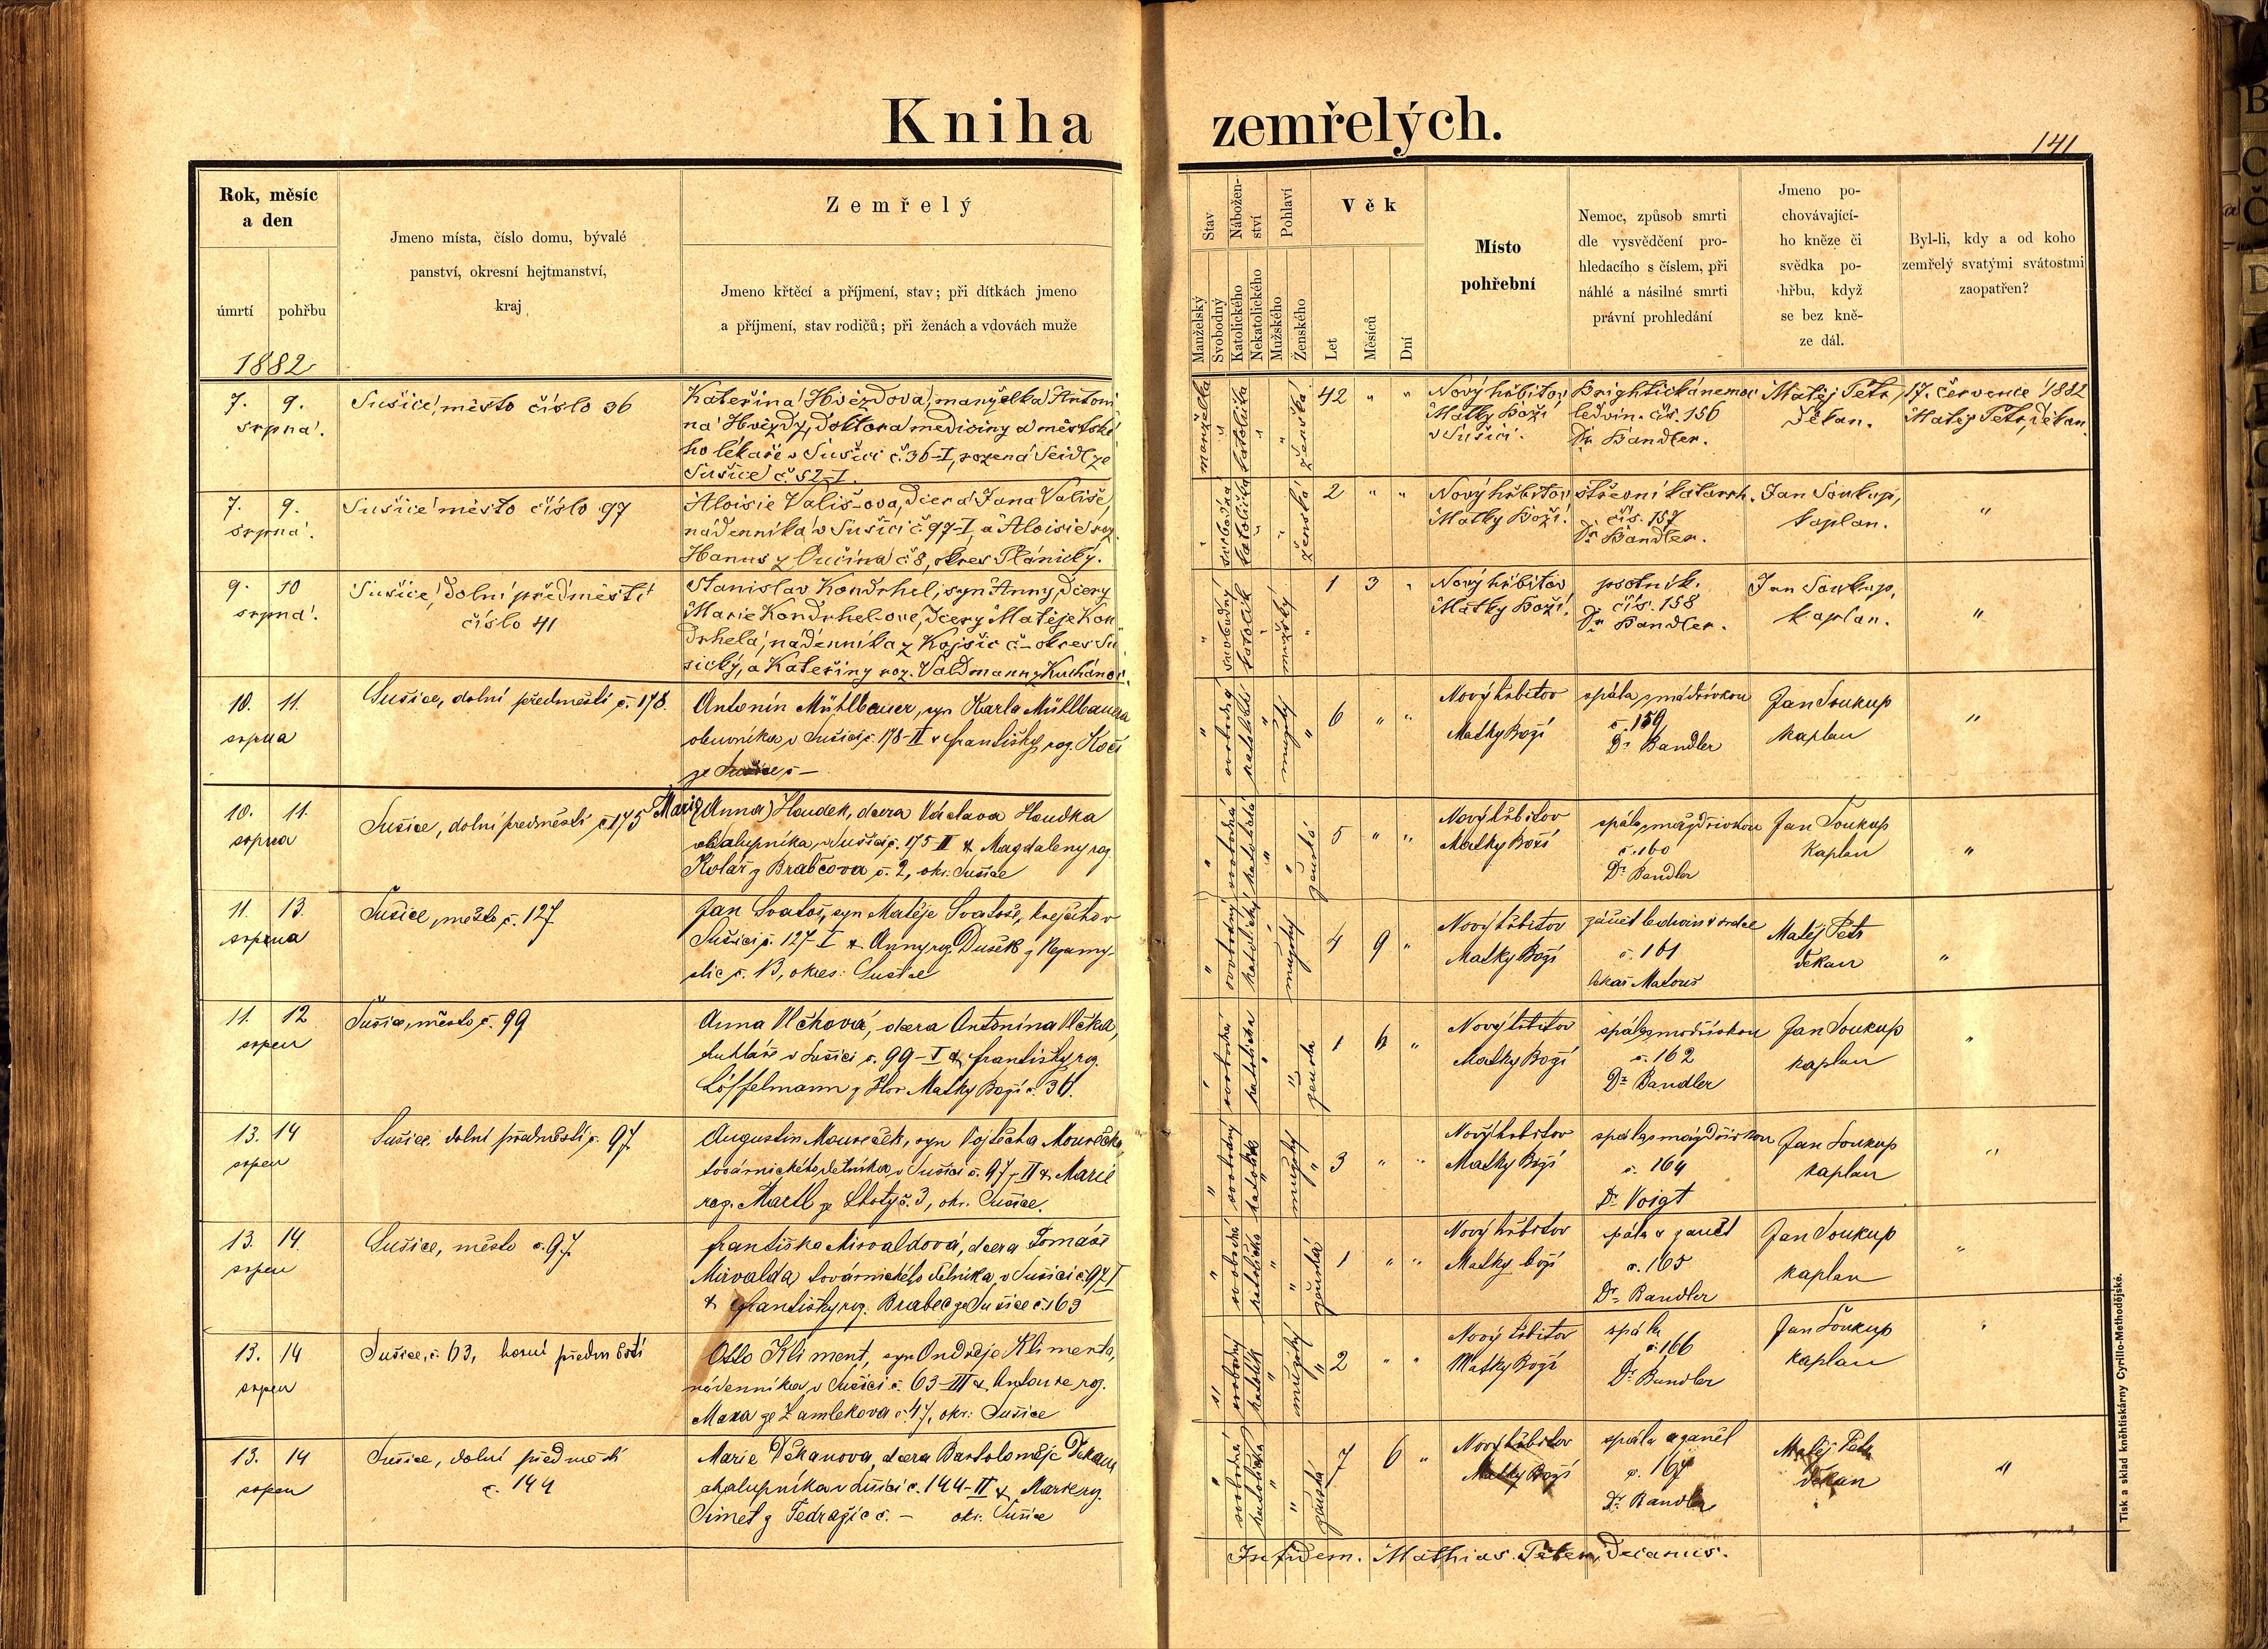 Kniha zemřelých.
141
Rok, měsíc
a den
úmrtí pohřbu
1882
Jmeno místa, číslo domu, bývalé
panství, okresní hejtmanství,
kraj
Zemřelý
Jmeno křtěcí a příjmení, stav; při dítkách jmeno
a příjmení, stav rodičů; při ženách a vdovách muže
Stav
Nábožen-
ství
Pohlaví
Manželský
Svobodný
Katolického
Nekatolického
Mužského
Ženského
Věk
Let
Měsíců
Dní
Místo
pohřební
Nemoc, způsob smrti
dle vysvědčení pro-
hledacího s číslem, při
náhlé a násilné smrti
právní prohledání
Jmeno po-
chovávající-
ho kněze či
svědka po-
hřbu, když
se bez kně-
ze dál.
Byl-li, kdy a od koho
zemřelý svatými svátostmi
zaopatřen?
7. 9.
srpna.
Sušice, město číslo 36
Kateřina Hvězdova, manželka Antoni
na Hvězdy, doktora mediciny a městské
ho lékaře v Sušici č. 36-I, rozená Seidl ze
Sušice č. 52-I.
manželka
katolička
ženská
42 " "
Nový hřbitov
Matky Boží
v Sušici.
Brightická nemoc
ledvin. čís. 156
Dr. Bandler.
Matěj Petr,
děkan.
17. července 1882
Matěj Petr, děkan.
7. 9.
srpna.
Sušice město číslo 97
Aloisie Vališ-ova, dcera Jana Vališe,
nádenníka v Sušici č. 97-I, a Aloisie roz.
Hanus z Oučína č 8, okres Plánický.
svobodná
katolička
ženská
2 " "
Nový hřbitov
Matky Boží.
střevní katarrh.
čís. 157
Dr. Bandler.
Jan Soukup,
kaplan.
"
9. 10
srpna.
Sušice, dolní předměstí
číslo 41
Stanislav Kondrhel, syn Anny, dcery
Marie Kondrhel-ové, dcery Matěje Kon
drhela, nádenníka z Kojšic č - okres Su
šický, a Kateřiny roz. Valdmann z Kuchánov.
svobodný
katolík
mužský
1 3 "
Nový hřbitov
Matky Boží.
psotník.
čís. 158
Dr. Bandler.
Jan Soukup,
kaplan.
"
10. 11.
srpna
Sušice, dolní předměstí č. 178.
Antonín Mühlbauer, syn Karla Mühlbauera
obuvníka v Sušici č. 178-II & Františky roz. Kočí
ze Sušice č -
svobodný
katolický
mužský
6 " "
Nový hřbitov
Matky Boží
č. 159
Dr Bandler
Jan Soukup
kaplan
"
10. 11.
srpna
Sušice, dolní předměstí č. 175
Marie (Anna) Houdek, dcera Václava Houdka
chalupníka, v Sušici č. 175 II & Magdaleny roz.
Kolář z Brabčova č. 2, okr. Sušice
svobodná
ženská
5 " "
Nový hřbitov
Matky Boží
č. 160
Dr Bandler
Jan Soukup
kaplan
"
11. 13.
srpna
Sušice, město č. 127
Jan Svatoš, syn Matěje Svatoše, krejčího v
Sušici č. 127-I & Anny roz. Dušek z Nezamy-
slic č. 13, okres: Sušice
svobodný
katolický
mužský
4 9 "
Nový hřbitov
Matky Boží
zánět ledvin & srdce
č. 161
lékař Matouš
Matěj Petr
děkan
"
11. 12
srpen
Sušice, město č. 99
Anna Vlčková, dcera Antonína Vlčka,
truhláře v Sušici č. 99-I & Františky roz.
Löffelmann z Hor. Matky Boží č. 36.
svobodná
katolička
ženská
1 6 "
Nový hřbitov
Matky Boží
č. 162
Dr Bandler
Jan Soukup
kaplan
"
13. 14
srpen
Sušice, dolní předměstí č. 97
Augustin Moureček, syn Vojtěcha Mourečka,
továrnického dělníka v Sušici č. 97-II & Marie
roz. Martl ze Lhoty č. 3, okr. Sušice.
svobodný
katolík
mužský
3 " "
Nový hřbitov
Matky Boží
č. 164
Dr. Voigt
Jan Soukup
kaplan
"
13. 14.
srpen
Sušice, město č. 97
Františka Mirvaldová, dcera Tomáše
Mirvalda továrnického dělníka, v Sušici č. 97 I
& Františky roz. Brabec ze Sušice č. 163
svobodná
katolička
ženská
1 " "
Nový hřbitov
Matky boží
spála & zánět
č. 165
Dr. Bandler
Jan Soukup
kaplan
"
13. 14
srpen
Sušice, č. 63, horní předměstí
Otto Kliment, syn Ondřeje Klimenta,
nádenníka v Sušici č. 63-III & Antonie roz.
Maxa ze Žamlekova č. 47, okr: Sušice
svobodný
katolík
mužský
2 " "
Nový hřbitov
Matky Boží
spála
č. 166
Dr. Bandler
Jan Soukup
kaplan
"
13. 14
srpen
Sušice, dolní předměstí
č. 144
Marie Děkanova, dcera Bartoloměje Děkana
chalupníka v Sušici č. 144-II & Marie roz.
Simet z Tedražic č. - okr. Sušice
svobodná
katolička
ženská
7 6 "
Nový hřbitov
Matky Boží
spála a zánět
č. 167
Dr. Bandler
Matěj Petr
děkan
"
In fidem. Mathias Peter, Decanus.
Tisk a sklad kněhtiskárny Cyrillo-Methodějské.